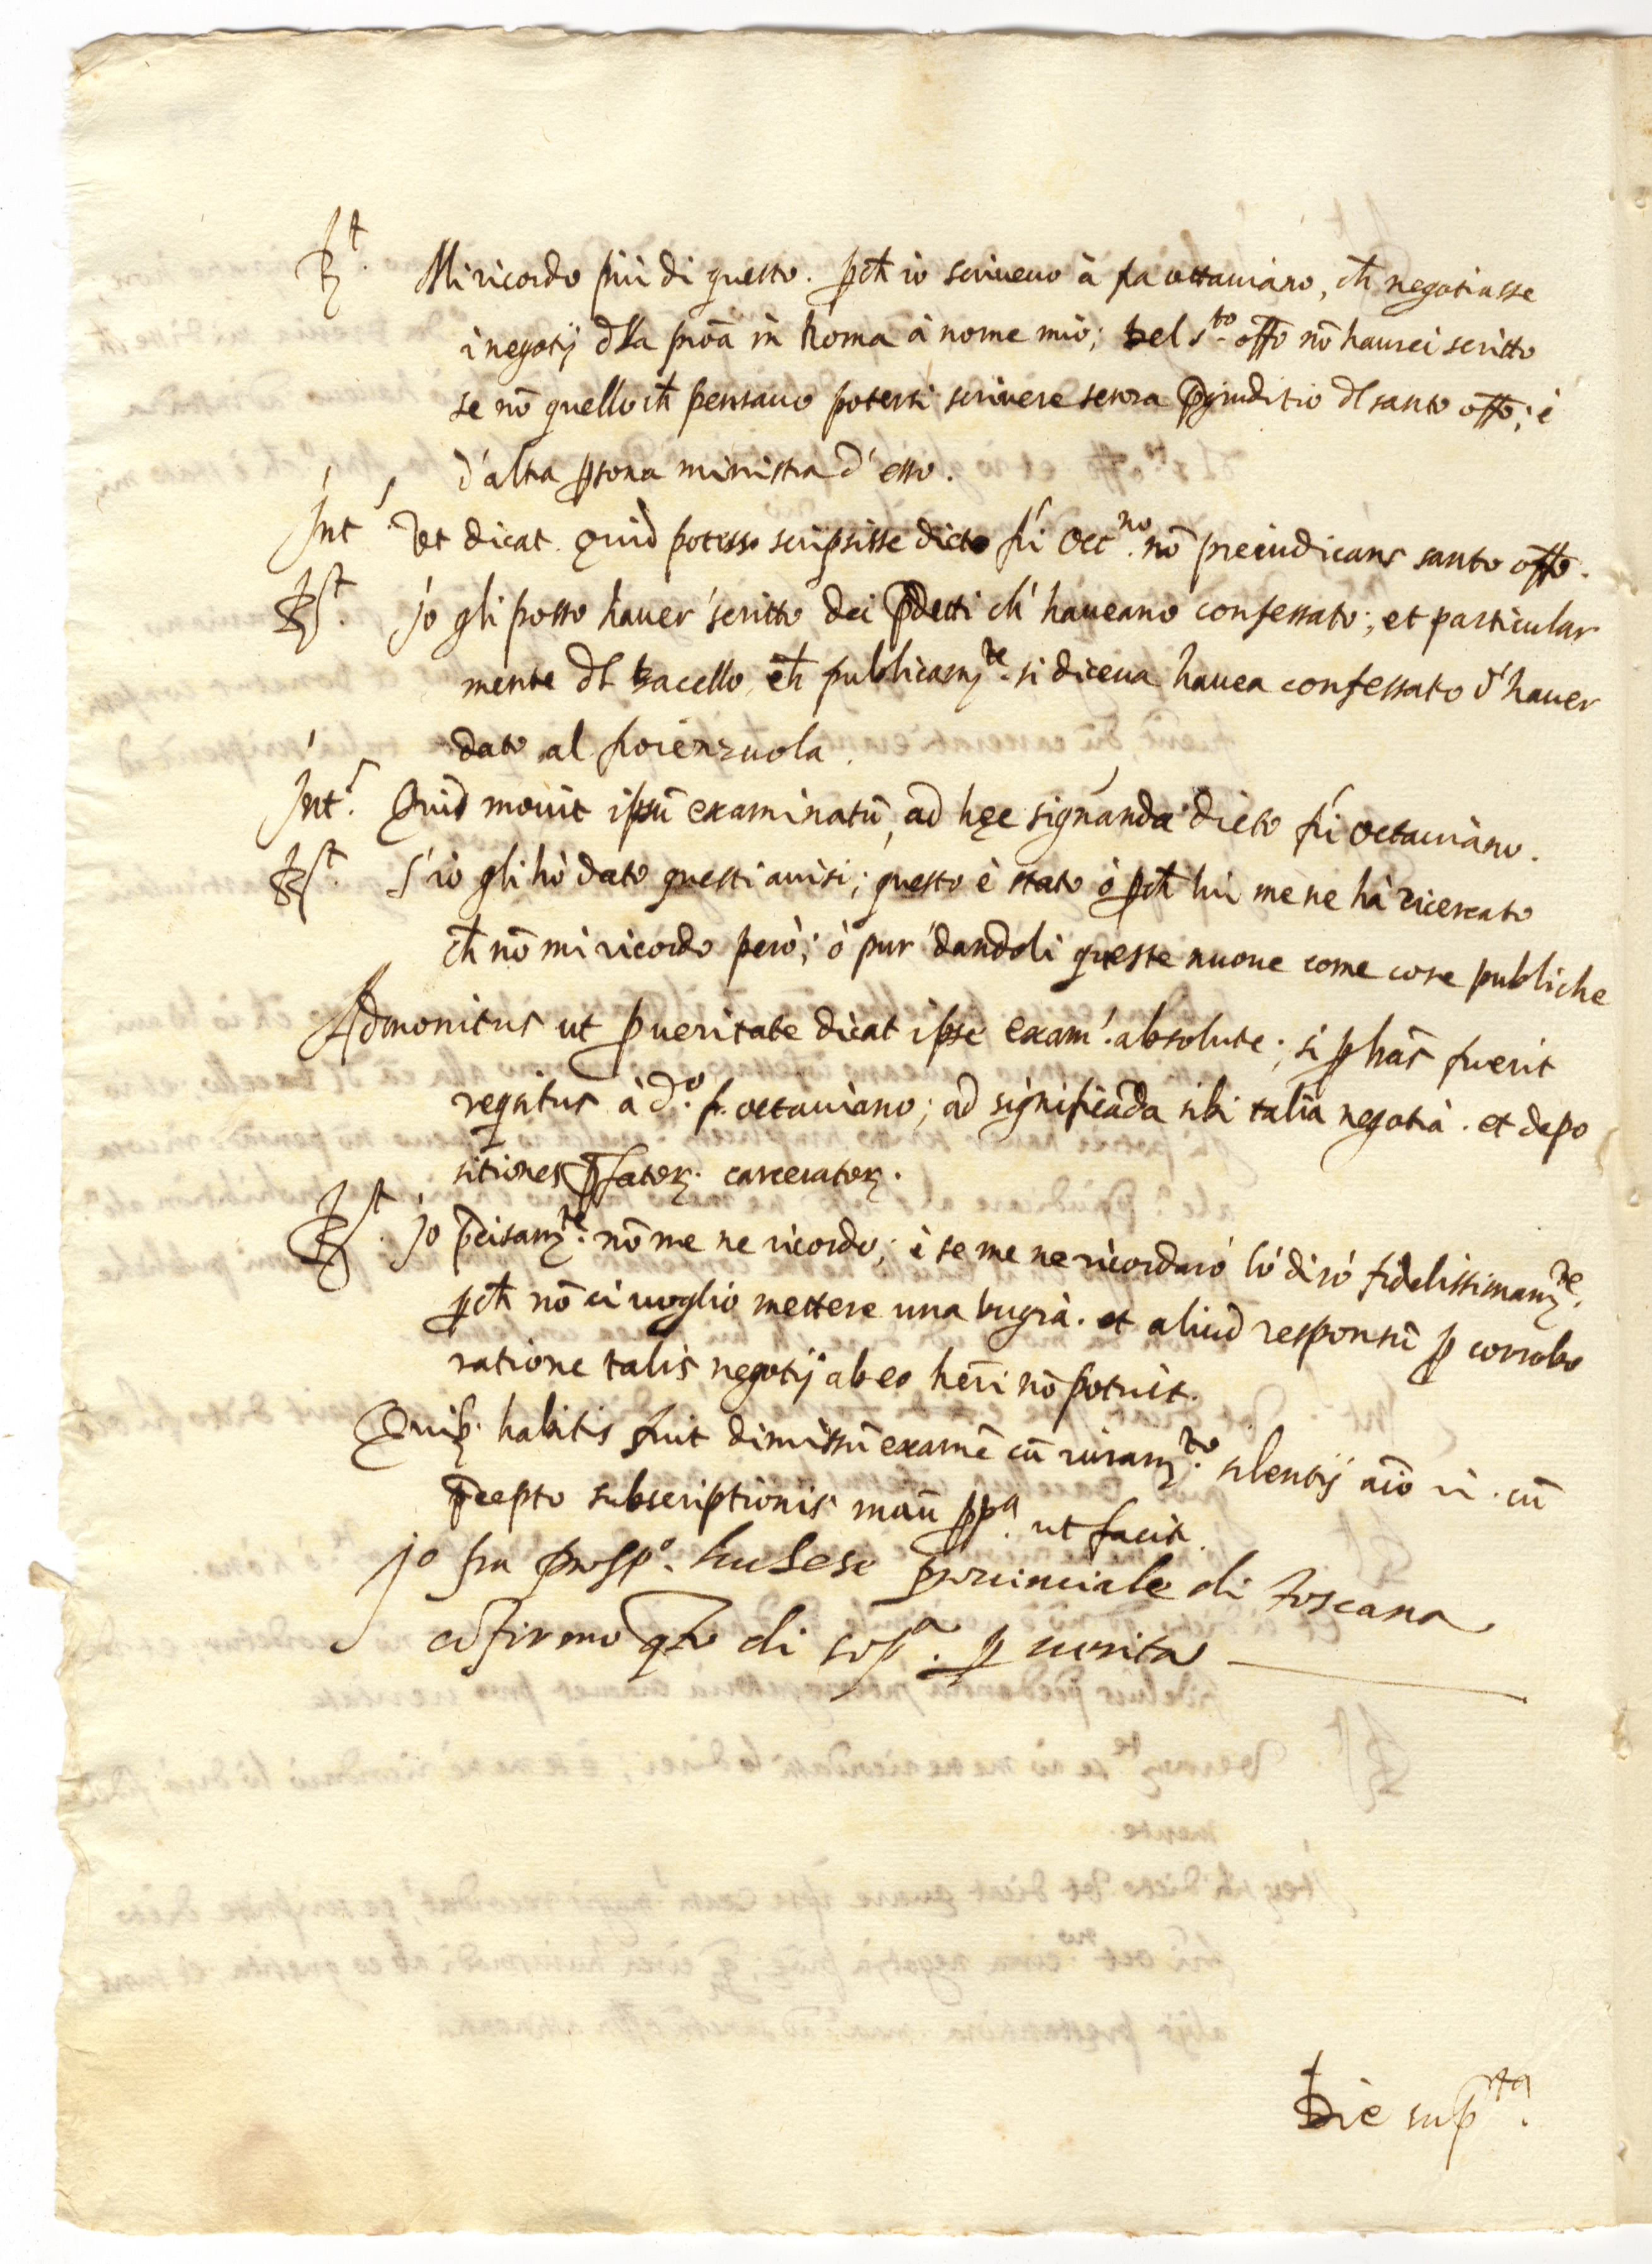 Rt. Mi ricordo piu di questo. pch io scriveuo à fra ottauiano, ch negotiasse
i negotij dlla proā in Roma à nome mio; del sto. offo nō haurei scritto
se nō quello ch pensauo potersi scriuere senza pgiuditio dl santo offo; è
d'altra psona ministra d'esso.
Int.s Vt dicat. Quid potesse scripsisse dicto fri Octno. nō preiudicans santo offo.
Rst. Jo gli posso hauer' scritto dei pdetti ch' haueano confessato; et particular
mente dl bacello, ch publicamte. si diceua hauea confessato d' hauer
dato al fiorenzuola.
Int.s Quid mouit ipsū examinatū, ad hęc signanda dicto fri octauiano.
Rst. S'io gli hò dato questi auisi; questo è stato ò pch lui me ne hà ricercato
ch nō mi ricordo però; ò pur' dandoli queste nuoue come cose publiche
Admonitus ut p ueritate dicat ipse exam'. absolute; si p hās fuerit
reqsitus à do. f. octauiano; ad significāda sibi talia negotia. et depo
sitiones pfator. carcerator.
Rst. Jo pcisamte. nō me ne ricordo; è se me ne ricordarò lò dirò fidelissimamte.
pch nō ci uoglio mettere una bugia. et aliud responsū p corrobo
ratione talis negotij ab eo heri nō potuit.
Quib. habitis fuit dimissū examē cū iuramto. silentij aīo ī. cū
pcepto subscriptionis manū ppa. ut facit.
Jo fra prospo. prouinciale di toscana
cōfirmo qto di sopa. p uerita
Die supta.